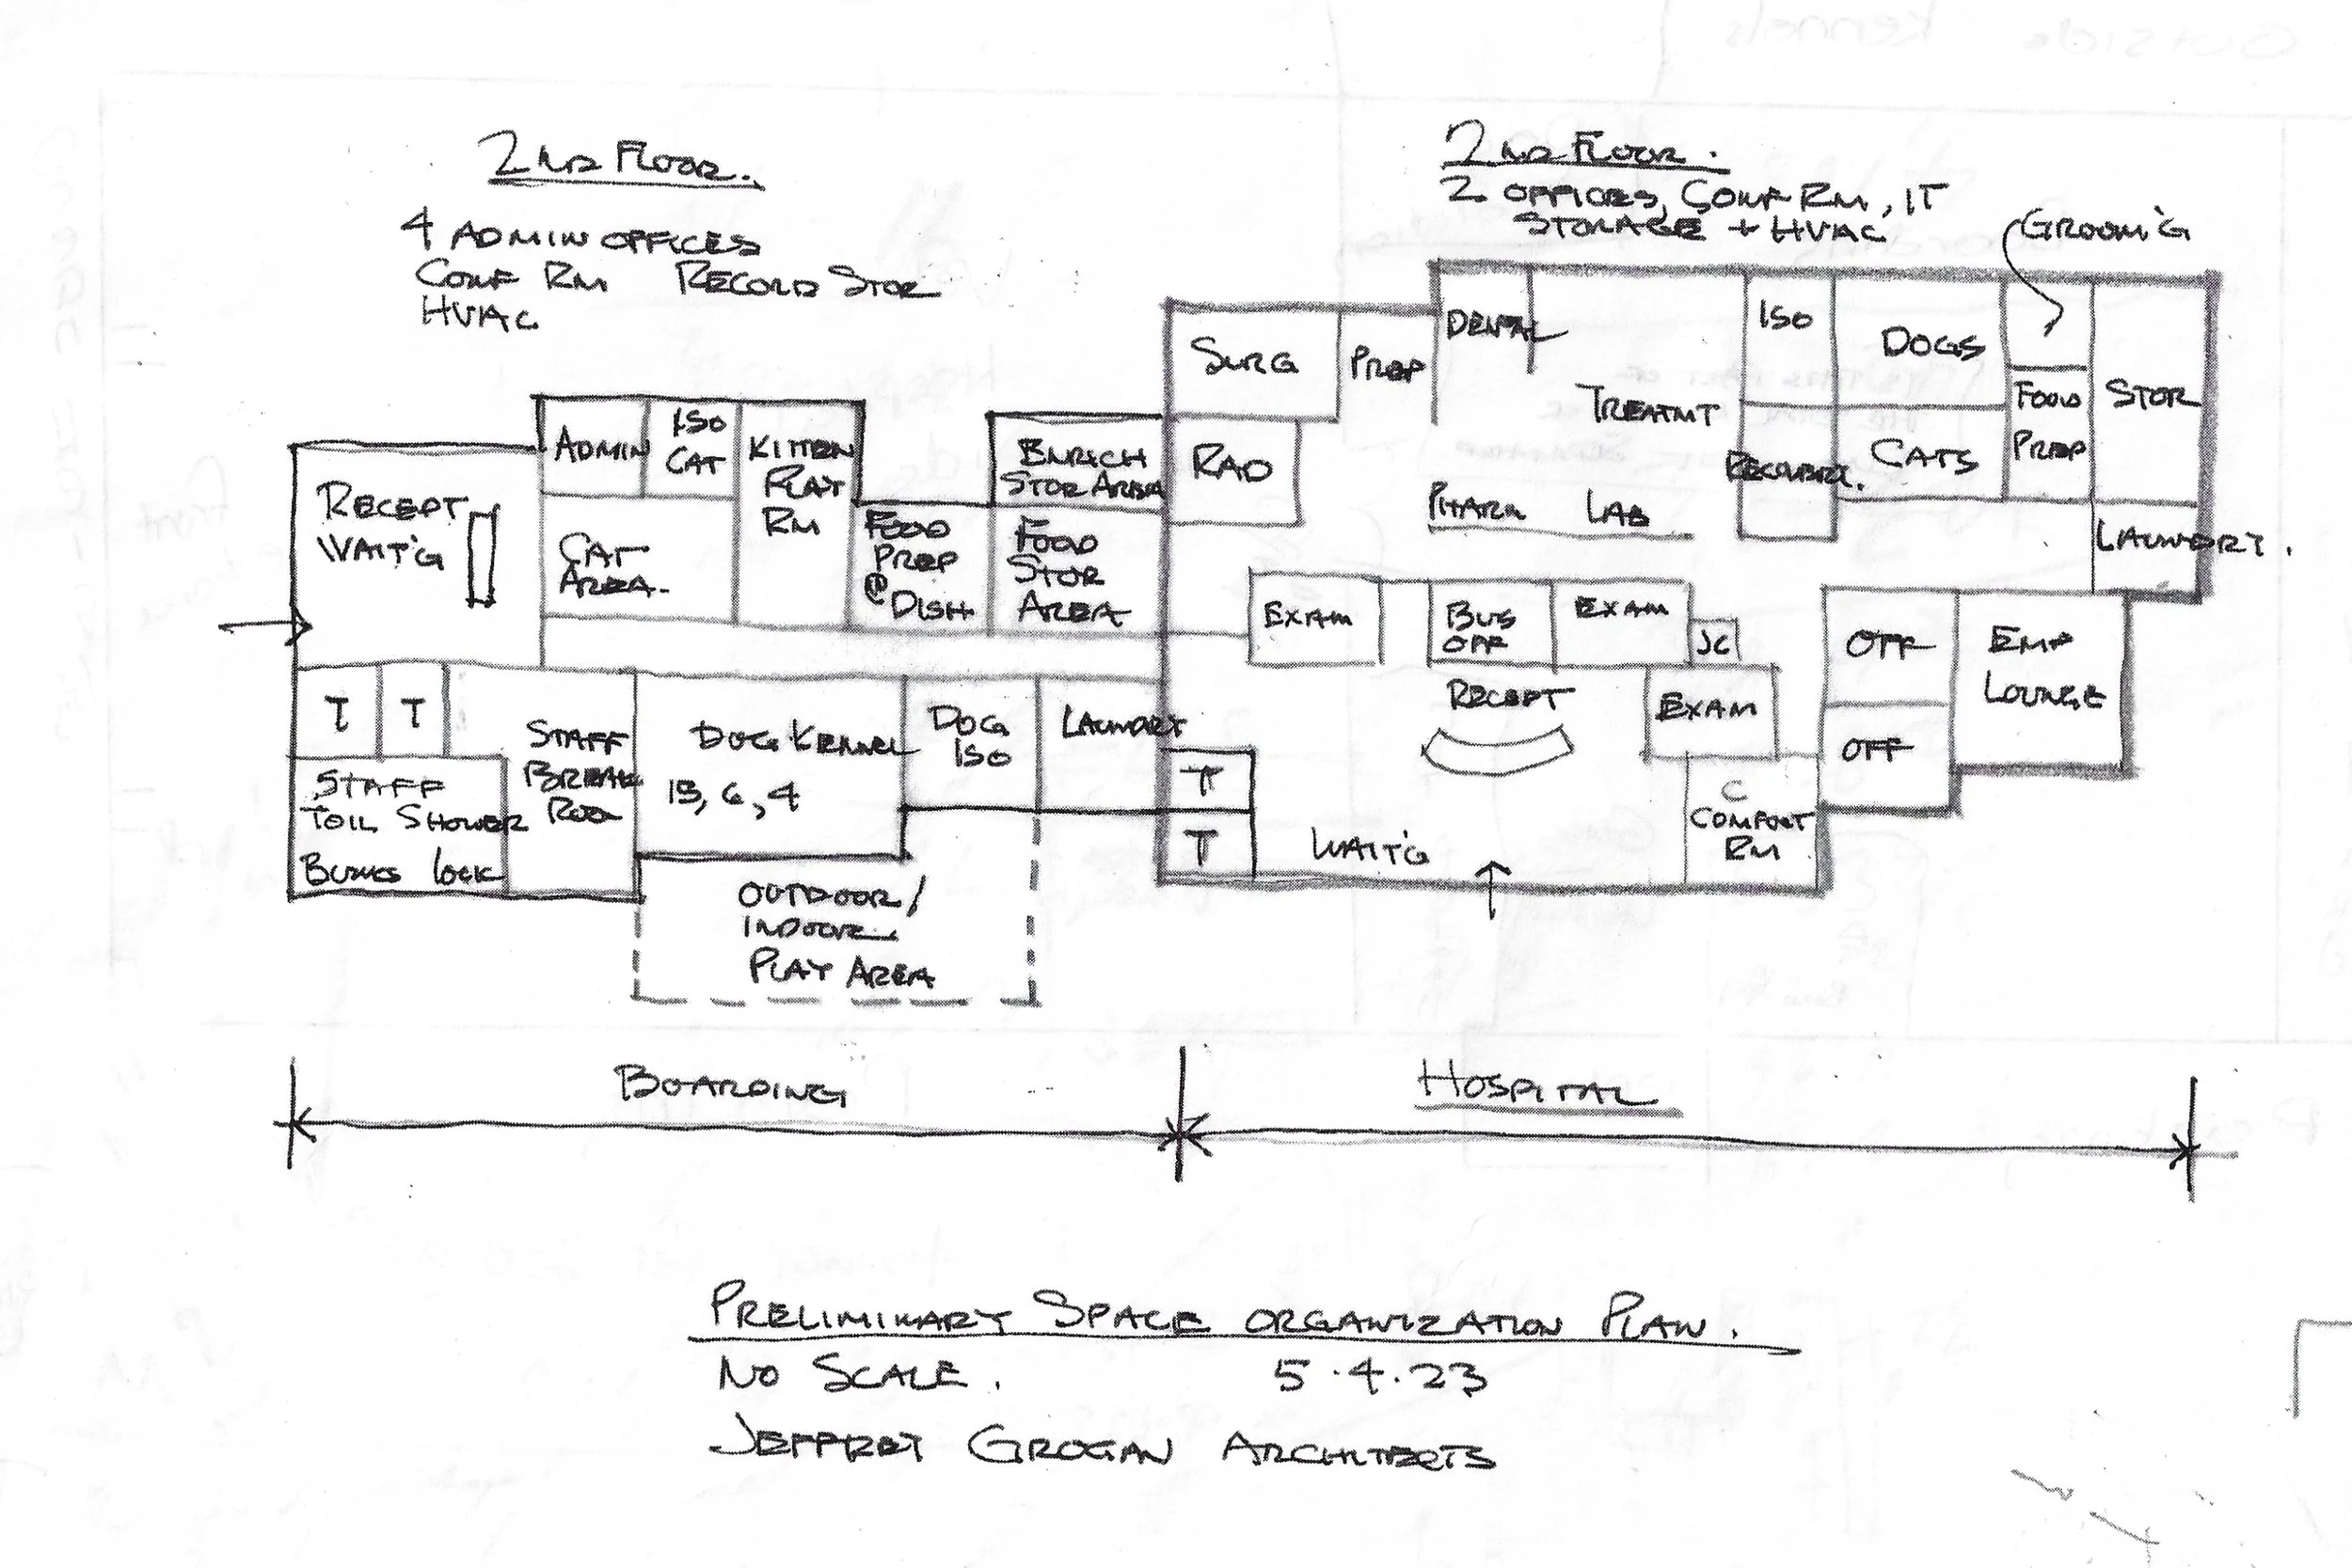 2ND FLOOR.
4 ADMIN OFFICES
CONF RM RECORD STOR
HVAC
2ND FLOOR.
2 OFFICES, CONF RM, IT
STORAGE + HVAC
GROOM'G
RECEPT
WAIT'G
ADMIN
ISO
CAT
KITTEN
PLAY
RM
CAT
AREA.
FOOD
PREP
@
DISH
ENRICH
STOR AREA
FOOD
STOR
AREA
T
T
STAFF
TOIL SHOWER
LOCK
STAFF
BREAK
DOG KENNEL
13, 6, 4
DOG
ISO
LAUNDRY
OUTDOOR/
INDOOR
PLAY AREA
SURG
PREP
DENTAL
TREATMT
ISO
DOGS
FOOD
PREP
STOR
RAD
PHARM LAB
RECOVERY.
CATS
LAUNDRY.
EXAM
BUS
OFF
EXAM
JC
OFF
EMP
LOUNGE
RECEPT
EXAM
OFF
T
T
WAIT'G
C
COMFORT
RM
BOARDING
HOSPITAL
PRELIMINARY SPACE ORGANIZATION PLAN.
NO SCALE. 5.4.23
JEFFREY GROGAN ARCHITECTS